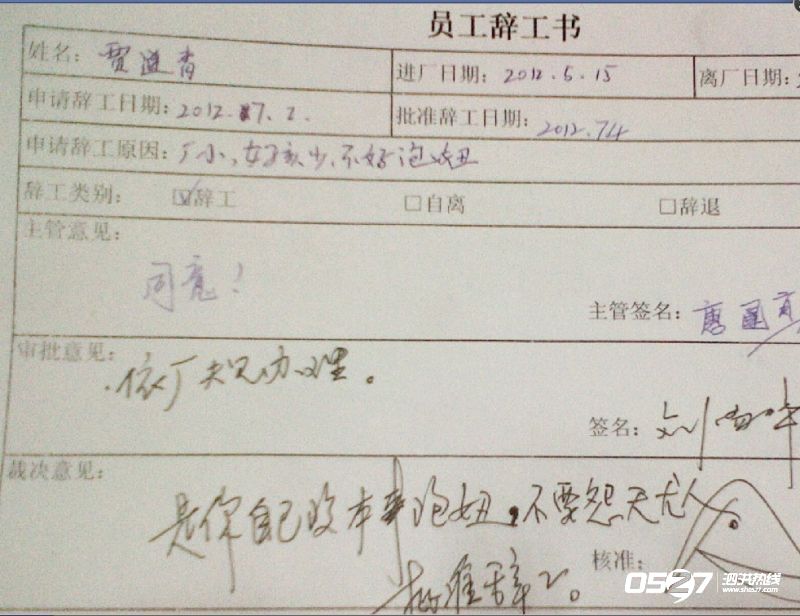 员工辞工书
姓名：贾进青 进厂日期：2012.5.15 离厂日期：
申请辞工日期：2012.7.2. 批准辞工日期：2012.7.4
申请辞工原因：厂小，女孩少，不好泡妞
辞工类别： ☑辞工 □自离 □辞退
主管意见：
同意！
主管签名：唐
审批意见：
依厂规办理。
签名：刘
裁决意见：
是你自己没本事泡妞，不要怨天尤人。
核准：
批准辞工。
0527 泗洪热线
www.sh0527.com